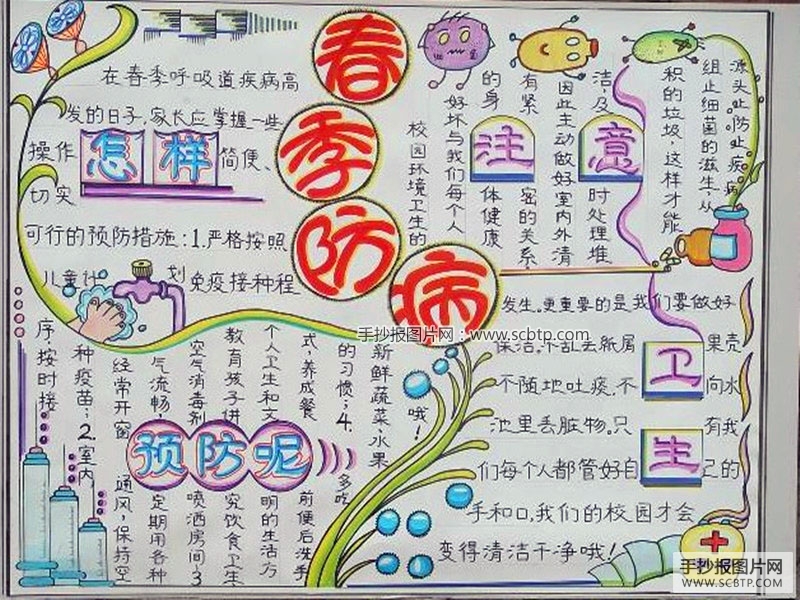 春季防病
在春季呼吸道疾病高
发的日子,家长应掌握一些
操作 怎样 简便、
切实
可行的预防措施:1.严格按照
儿童计划免疫接种程
序按时接
种疫苗;2.室内
经常开窗通风,保持空
气流畅,定期用各种
空气消毒剂喷洒房间;3
教育孩子讲究饮食卫生
个人卫生和文明的生活方
式,养成餐前便后洗手
的习惯;4.多吃
新鲜蔬菜,水果
哦!
预防呢
注意
校园环境卫生的
好坏与我们每个人
的身体健康
有紧密的关系
因此主动做好室内外清
洁及时处理堆
积的垃圾,这样才能
组止细菌的滋生,从
源头止防止疾病
发生。更重要的是我们要做好
保洁,不乱丢纸屑果壳
不随地吐痰,不向水
池里丢脏物。只有我
们每个人都管好自己的
手和口,我们的校园才会
变得清洁干净哦!
卫生
手抄报图片网:www.scbtp.com
手抄报图片网
WWW.SCBTP.COM